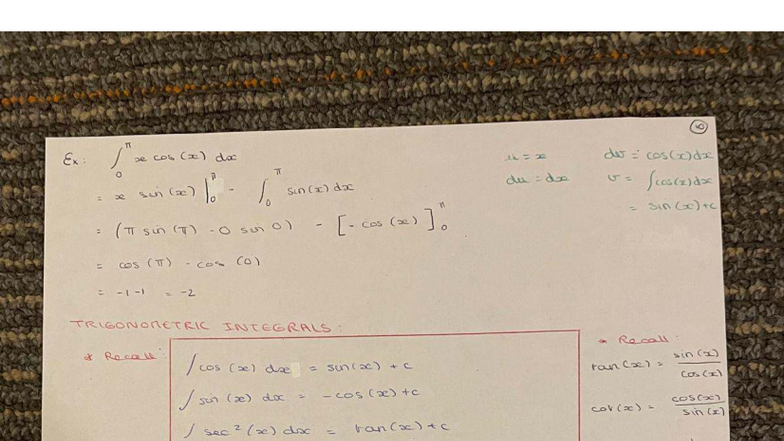 6
Ex: ∫₀^π x cos(x) dx
u = x
dv = cos(x)dx
= x sin(x) |₀^π - ∫₀^π sin(x)dx
du = dx
v = ∫cos(x)dx
= sin(x)+c
= (π sin(π) - 0 sin 0) - [-cos(x)]₀^π
= cos(π) - cos(0)
= -1 -1 = -2
TRIGONOMETRIC INTEGRALS:
* Recall:
∫cos(x) dx = sin(x) + c
∫sin(x) dx = -cos(x) + c
∫sec²(x) dx = tan(x) + c
* Recall:
tan(x) = sin(x)/cos(x)
cot(x) = cos(x)/sin(x)